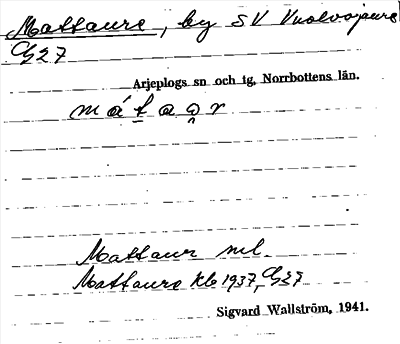 Mattaure, by SV Vuolvojaure
G27
Arjeplogs sn och tg, Norrbottens län.
má t a o r
Mattaur ml.
Mattaure kb 1937, G27
Sigvard Wallström, 1941.